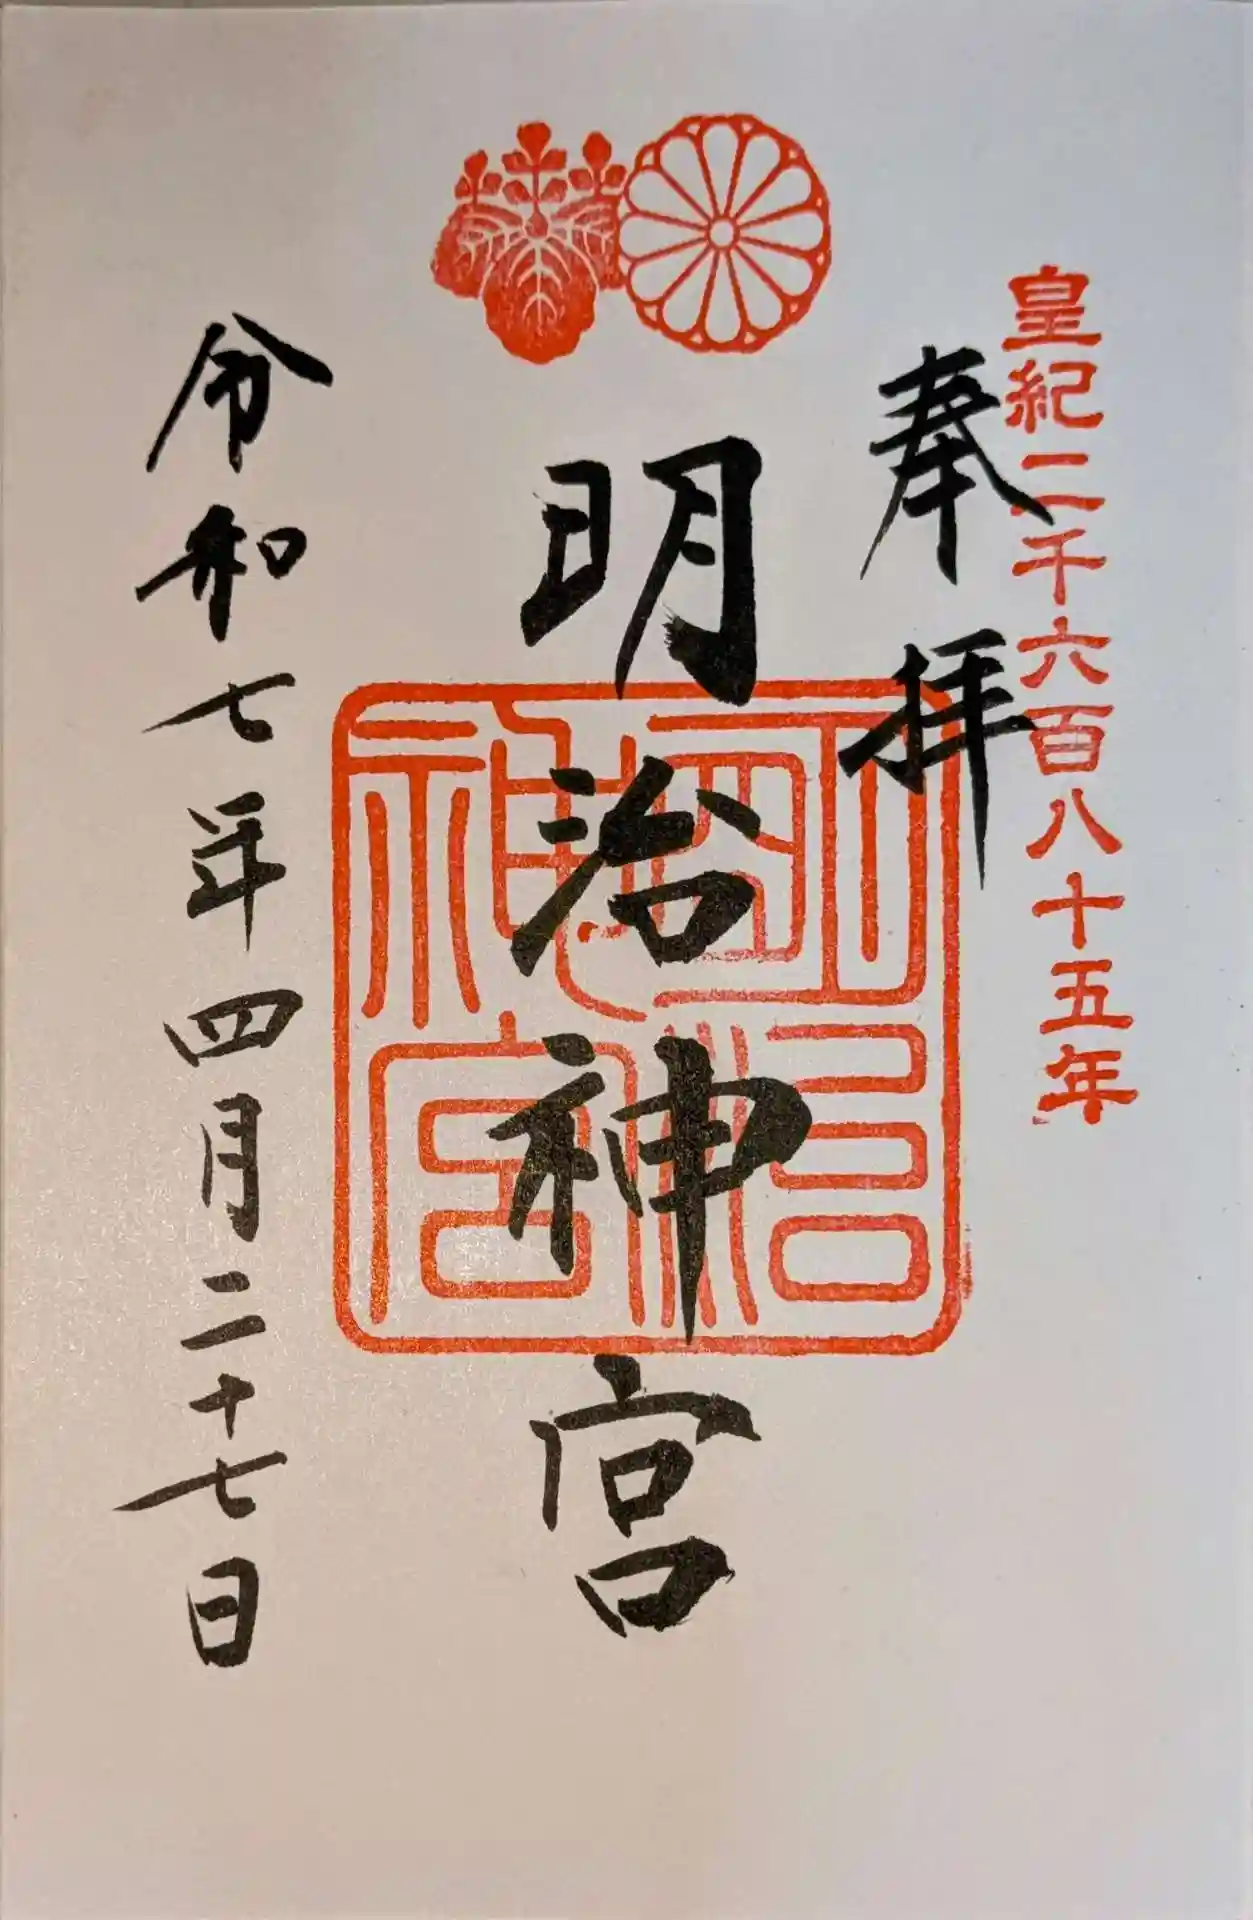 皇紀二千六百八十五年
奉拝
明治神宮
明治神宮
令和七年四月二十七日